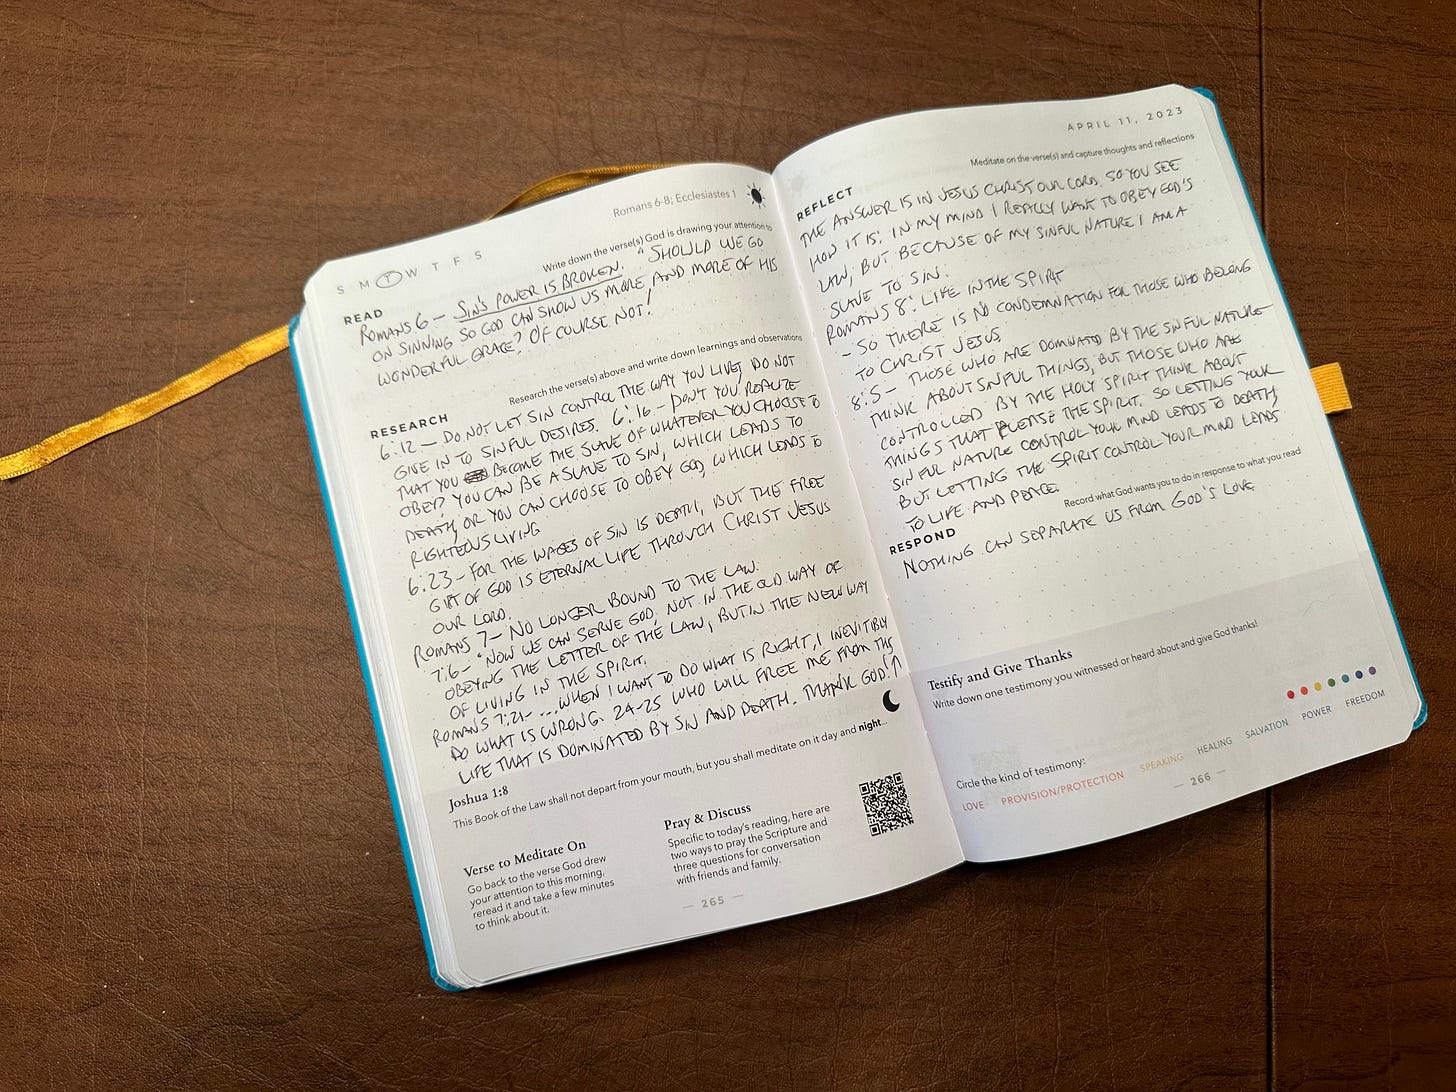 Romans 6-8; Ecclesiastes 1
S M T W T F S
Write down the verse(s) God is drawing your attention to
READ
ROMANS 6 - SIN'S POWER IS BROKEN. "SHOULD WE GO
ON SINNING SO GOD CAN SHOW US MORE AND MORE OF HIS
WONDERFUL GRACE? OF COURSE NOT!
Research the verse(s) above and write down learnings and observations
RESEARCH
6:12 - DO NOT LET SIN CONTROL THE WAY YOU LIVE, DO NOT
GIVE IN TO SINFUL DESIRES. 6:16 - DON'T YOU REALIZE
THAT YOU BECOME THE SLAVE OF WHATEVER YOU CHOOSE TO
OBEY? YOU CAN BE A SLAVE TO SIN, WHICH LEADS TO
DEATH, OR YOU CAN CHOOSE TO OBEY GOD, WHICH LEADS TO
RIGHTEOUS LIVING
6:23 - FOR THE WAGES OF SIN IS DEATH, BUT THE FREE
GIFT OF GOD IS ETERNAL LIFE THROUGH CHRIST JESUS
OUR LORD.
ROMANS 7 - NO LONGER BOUND TO THE LAW.
7:6 - "NOW WE CAN SERVE GOD, NOT IN THE OLD WAY OF
OBEYING THE LETTER OF THE LAW, BUT IN THE NEW WAY
OF LIVING IN THE SPIRIT.
ROMANS 7:21 - ...WHEN I WANT TO DO WHAT IS RIGHT, I INEVITIBLY
DO WHAT IS WRONG. 24-25 WHO WILL FREE ME FROM THIS
LIFE THAT IS DOMINATED BY SIN AND DEATH. THANK GOD!
Joshua 1:8
This Book of the Law shall not depart from your mouth, but you shall meditate on it day and night...
Verse to Meditate On
Go back to the verse God drew
your attention to this morning,
reread it and take a few minutes
to think about it.
Pray & Discuss
Specific to today's reading, here are
two ways to pray the Scripture and
three questions for conversation
with friends and family.
— 265 —
APRIL 11, 2023
Meditate on the verse(s) and capture thoughts and reflections
REFLECT
THE ANSWER IS IN JESUS CHRIST OUR LORD. SO YOU SEE
HOW IT IS: IN MY MIND I REALLY WANT TO OBEY GOD'S
LAW, BUT BECAUSE OF MY SINFUL NATURE I AM A
SLAVE TO SIN.
ROMANS 8: LIFE IN THE SPIRIT
- SO THERE IS NO CONDEMNATION FOR THOSE WHO BELONG
TO CHRIST JESUS
8:5 - THOSE WHO ARE DOMINATED BY THE SINFUL NATURE
THINK ABOUT SINFUL THINGS, BUT THOSE WHO ARE
CONTROLLED BY THE HOLY SPIRIT THINK ABOUT
THINGS THAT PLEASE THE SPIRIT. SO LETTING YOUR
SINFUL NATURE CONTROL YOUR MIND LEADS TO DEATH,
BUT LETTING THE SPIRIT CONTROL YOUR MIND LEADS
TO LIFE AND PEACE.
Record what God wants you to do in response to what you read
RESPOND
NOTHING CAN SEPARATE US FROM GOD'S LOVE
Testify and Give Thanks
Write down one testimony you witnessed or heard about and give God thanks!
Circle the kind of testimony:
LOVE PROVISION/PROTECTION SPEAKING HEALING SALVATION POWER FREEDOM
— 266 —